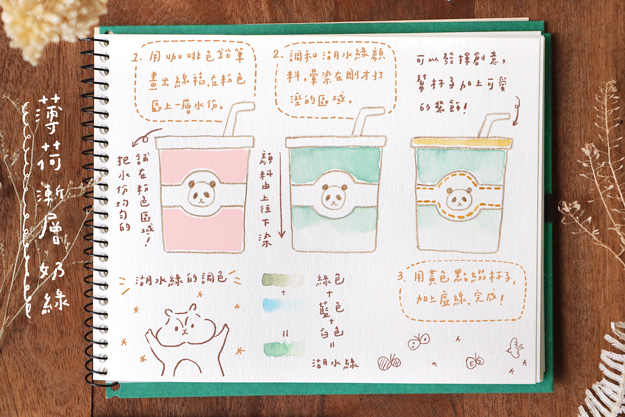 薄荷漸層奶綠
1. 用咖啡色鉛筆
畫出線稿,在粉色
區上一層水份。
2. 調和湖水綠顏
料,暈染在剛才打
溼的區域。
可以發揮創意,
幫杯子加上可愛
的裝飾!
鋪在粉色區域!
把水份均勻的
顏料由上往下染
湖水綠的調色
綠色
+
藍色
+
白色
=
湖水綠
3. 用黃色點綴杯子,
加上虛線,完成!